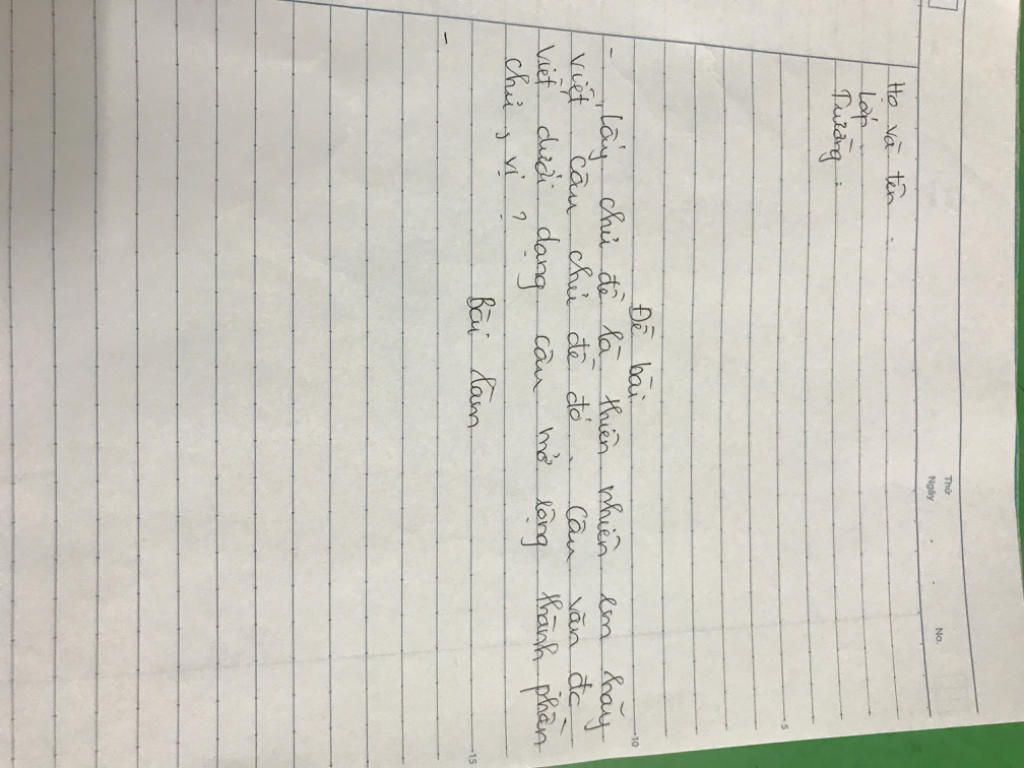 Thứ
Ngày
No.
Họ và tên :
Lớp :
Trường :
5
Đề bài
10
- Lấy chủ đề là thiên nhiên em hãy
viết câu chủ đề đó. Câu văn đc
viết dưới dạng câu mở rộng thành phần
chủ, vị ?
Bài làm
15
-